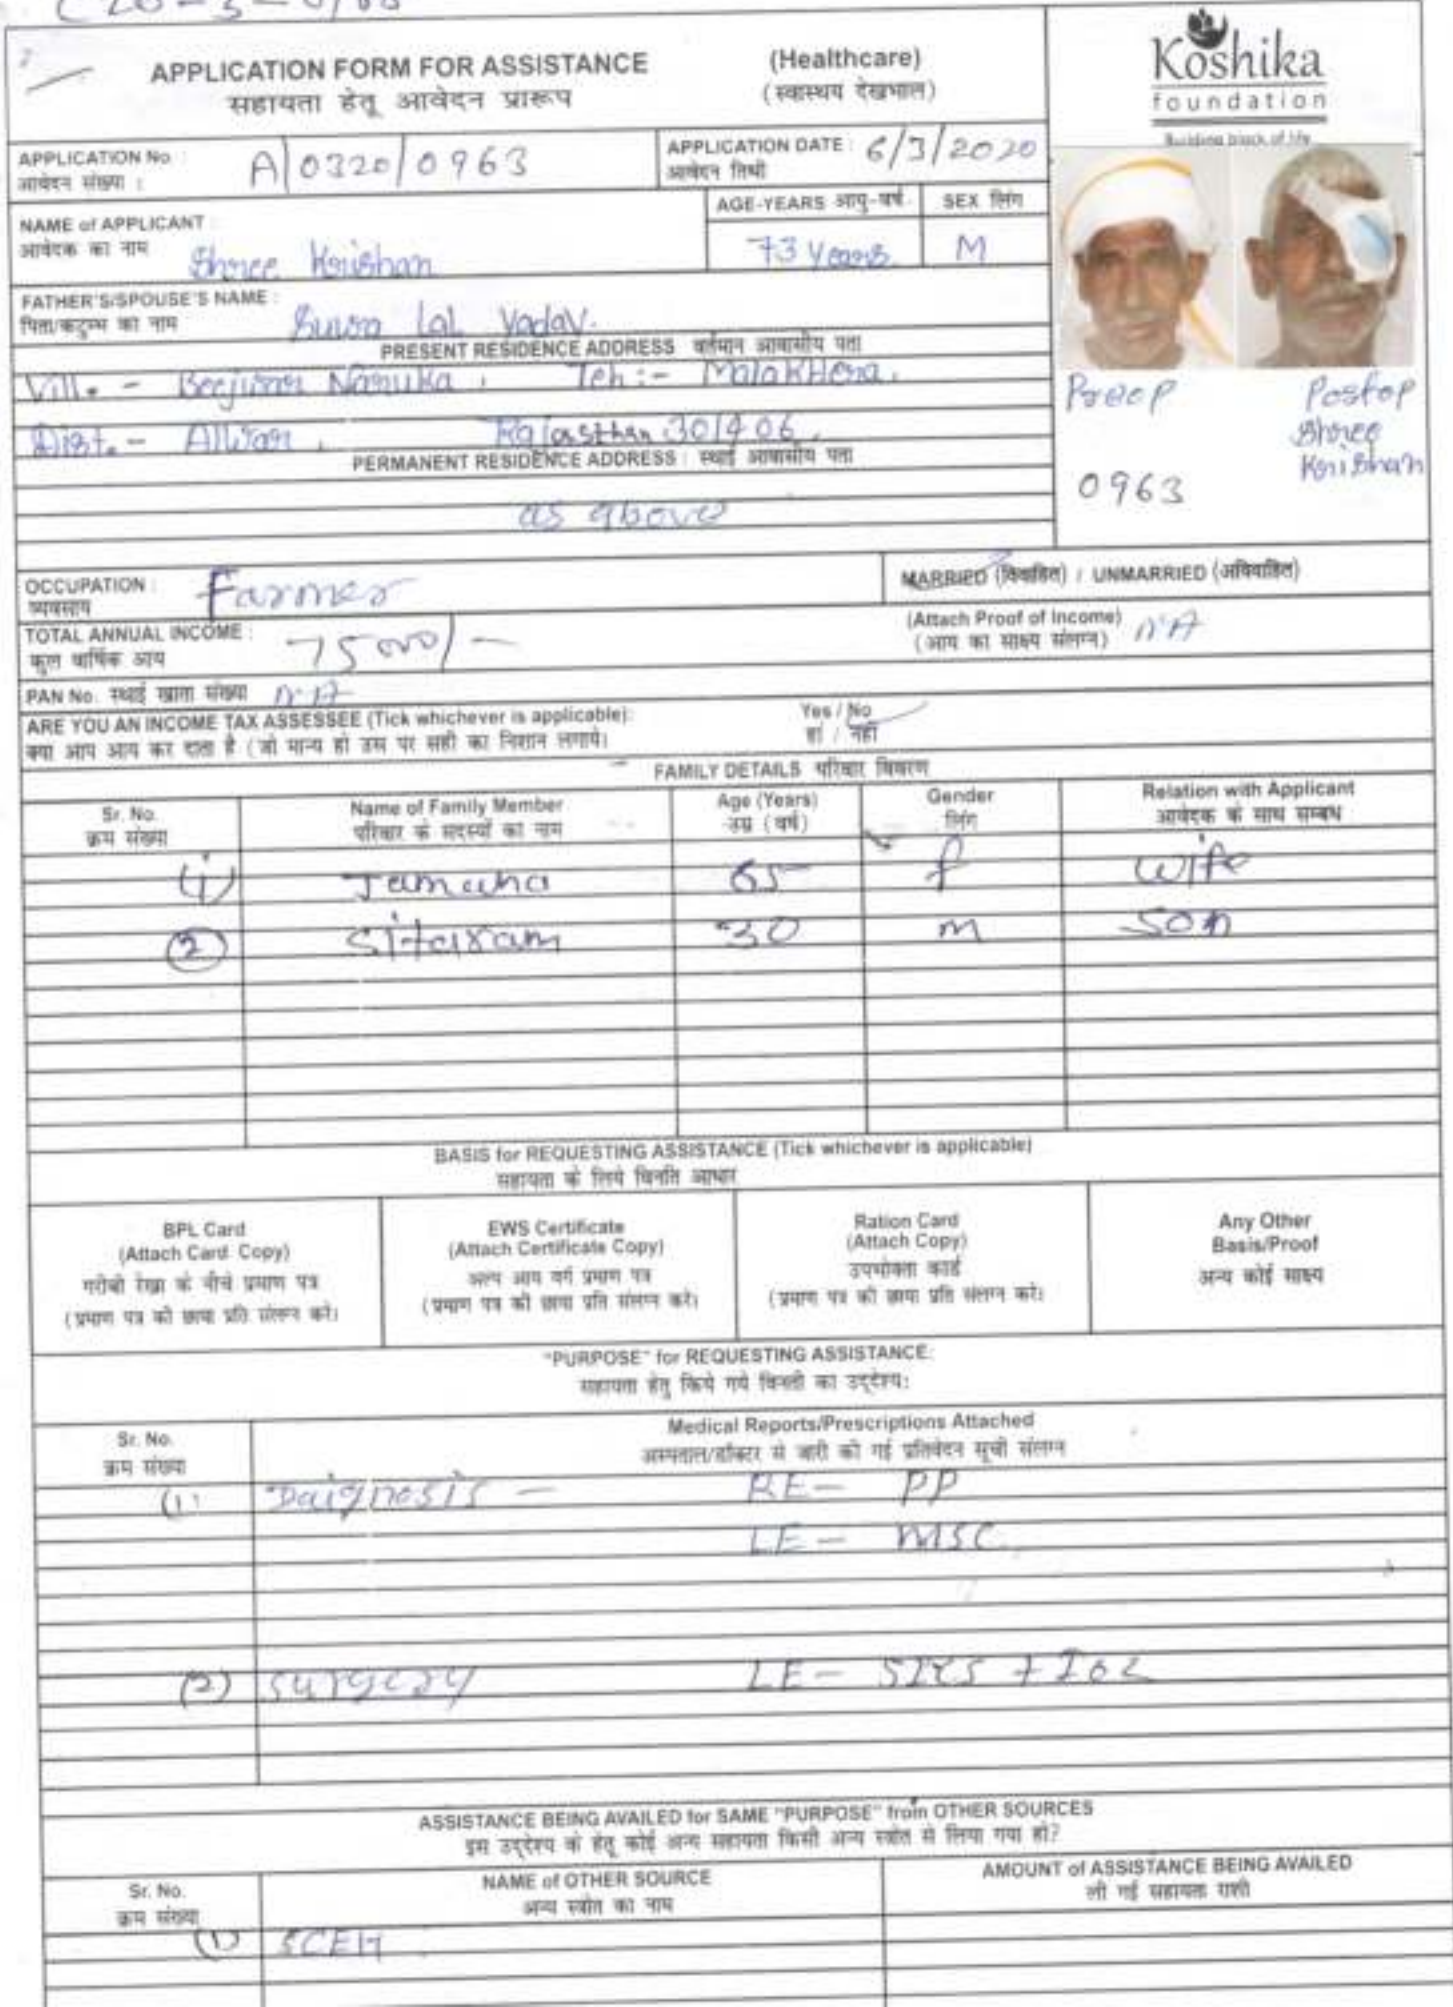 APPLICATION FORM FOR ASSISTANCE
(Healthcare)
सहायता हेतू आवेदन प्रारूप
(स्वास्थय देखभाल)
Koshika
foundation
Building block of life
APPLICATION No :
आवेदन संख्या :
A/0320/0963
APPLICATION DATE :
आवेदन तिथी
6/3/2020
NAME of APPLICANT :
आवेदक का नाम
Shree Krishan
AGE-YEARS आयु-वर्ष
73 Years
SEX लिंग
M
FATHER'S/SPOUSE'S NAME :
पिता/कटुम्भ का नाम
Lal Yadav.
PRESENT RESIDENCE ADDRESS वर्तमान आवासीय पता
Vill. - Beejwar Naruka, Teh :- Malakhera,
Dist. - Alwar, Rajasthan 301406,
PERMANENT RESIDENCE ADDRESS : स्थाई आवासीय पता
as above
Preop
Postop
Shree
Krishan
0963
OCCUPATION :
व्यवसाय
Farmer
MARRIED (विवाहित) / UNMARRIED (अविवाहित)
TOTAL ANNUAL INCOME :
कुल वार्षिक आय
75000/-
(Attach Proof of Income)
(आय का साक्ष्य संलग्न)
NA
PAN No. स्थाई खाता संख्या NA
ARE YOU AN INCOME TAX ASSESSEE (Tick whichever is applicable):
Yes / No
क्या आप आय कर दाता है (जो मान्य हो उस पर सही का निशान लगाये)
हां / नहीं
FAMILY DETAILS परिवार विवरण
Sr. No.
क्रम संख्या
Name of Family Member
परिवार के सदस्यों का नाम
Age (Years)
उम्र (वर्ष)
Gender
लिंग
Relation with Applicant
आवेदक के साथ सम्बंध
(1) Jamuna 65 f wife
(2) Sitaram 30 m son
BASIS for REQUESTING ASSISTANCE (Tick whichever is applicable)
सहायता के लिये विनति आधार
BPL Card
(Attach Card Copy)
गरीबी रेखा के नीचे प्रमाण पत्र
(प्रमाण पत्र की छाया प्रति संलग्न करे)
EWS Certificate
(Attach Certificate Copy)
अल्प आय वर्ग प्रमाण पत्र
(प्रमाण पत्र की छाया प्रति संलग्न करे)
Ration Card
(Attach Copy)
उपभोक्ता कार्ड
(प्रमाण पत्र की छाया प्रति संलग्न करे)
Any Other
Basis/Proof
अन्य कोई साक्ष्य
"PURPOSE" for REQUESTING ASSISTANCE:
सहायता हेतु किये गये विनती का उद्देश्य:
Sr. No.
क्रम संख्या
Medical Reports/Prescriptions Attached
अस्पताल/डॉक्टर से जारी की गई प्रतिवेदन सूची संलग्न
(1) Daignosis - RE - PP
LE - MSC
(2) Surgery LE - SICS + IOL
ASSISTANCE BEING AVAILED for SAME "PURPOSE" from OTHER SOURCES
इस उद्देश्य के हेतू कोई अन्य सहायता किसी अन्य स्त्रोत से लिया गया हो?
Sr. No.
क्रम संख्या
NAME of OTHER SOURCE
अन्य स्त्रोत का नाम
AMOUNT of ASSISTANCE BEING AVAILED
ली गई सहायता राशी
(1) SCEH